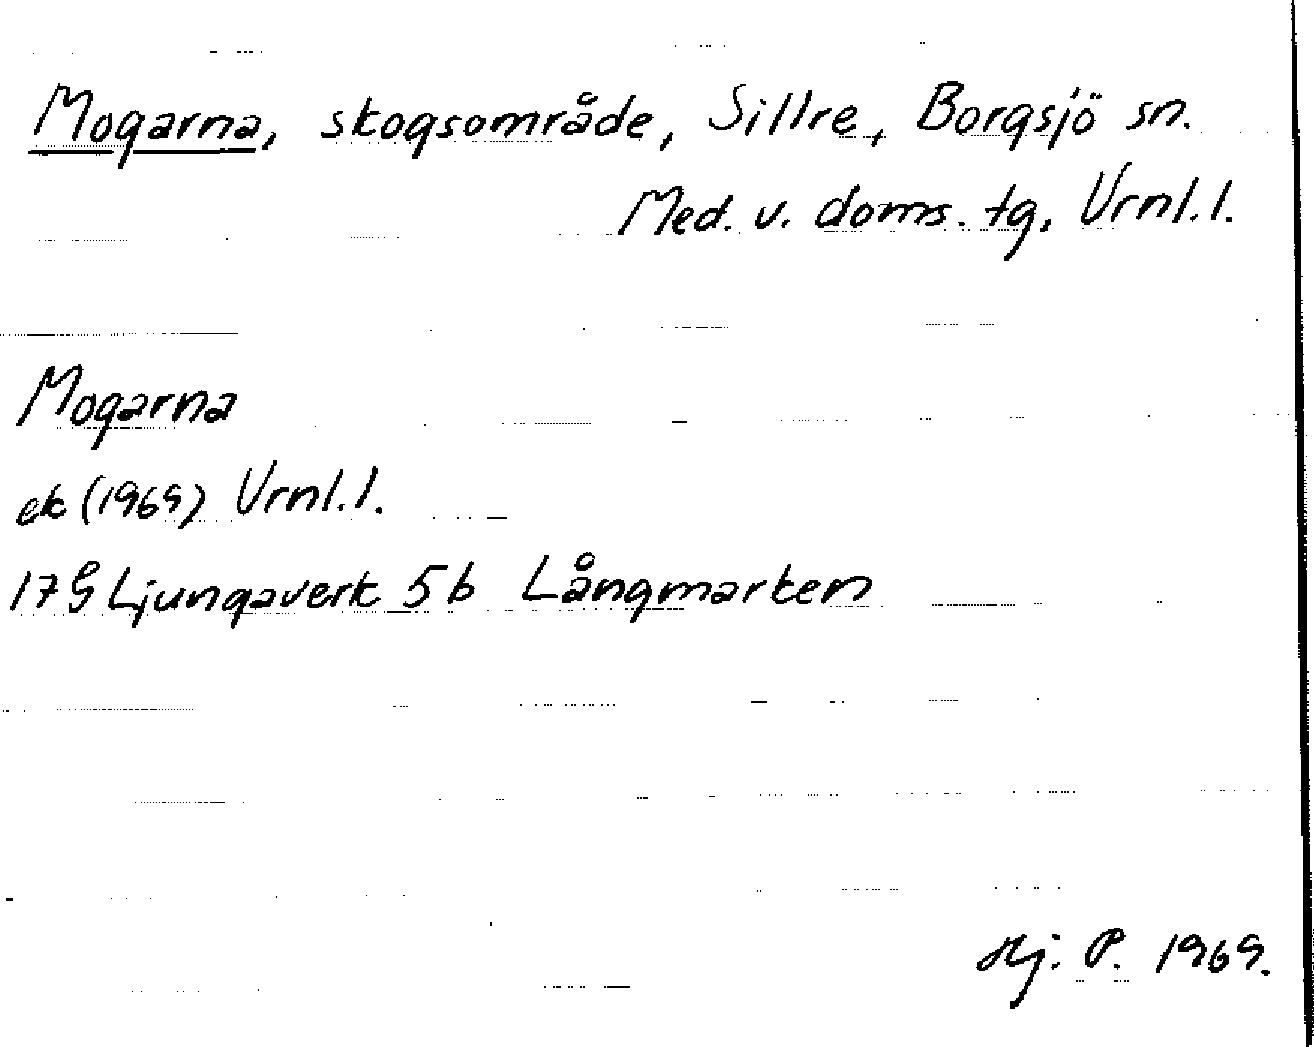 Mogarna, skogsområde, Sillre, Borgsjö sn.
Med. v. doms. tg, Vrnl.l.
Mogarna
ek (1969) Vrnl.l.
17G Ljungaverk 5b Långmarken
Hj. P. 1969.